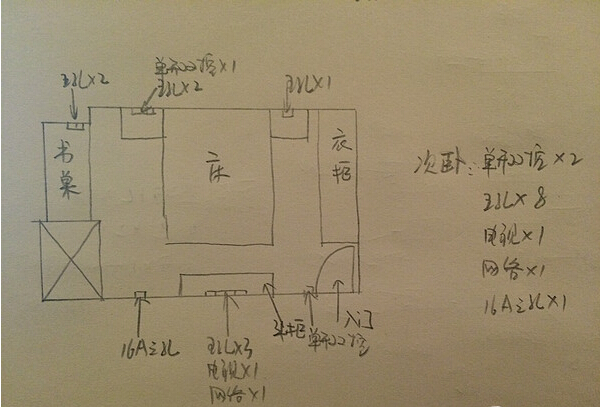 五孔×2
单开双控×1
五孔×2
五孔×1
书桌
床
衣柜
次卧：单开双控×2
五孔×8
电视×1
网络×1
16A三孔×1
16A三孔
五孔×3
电视×1
网络×1
斗柜
单开双控
入门